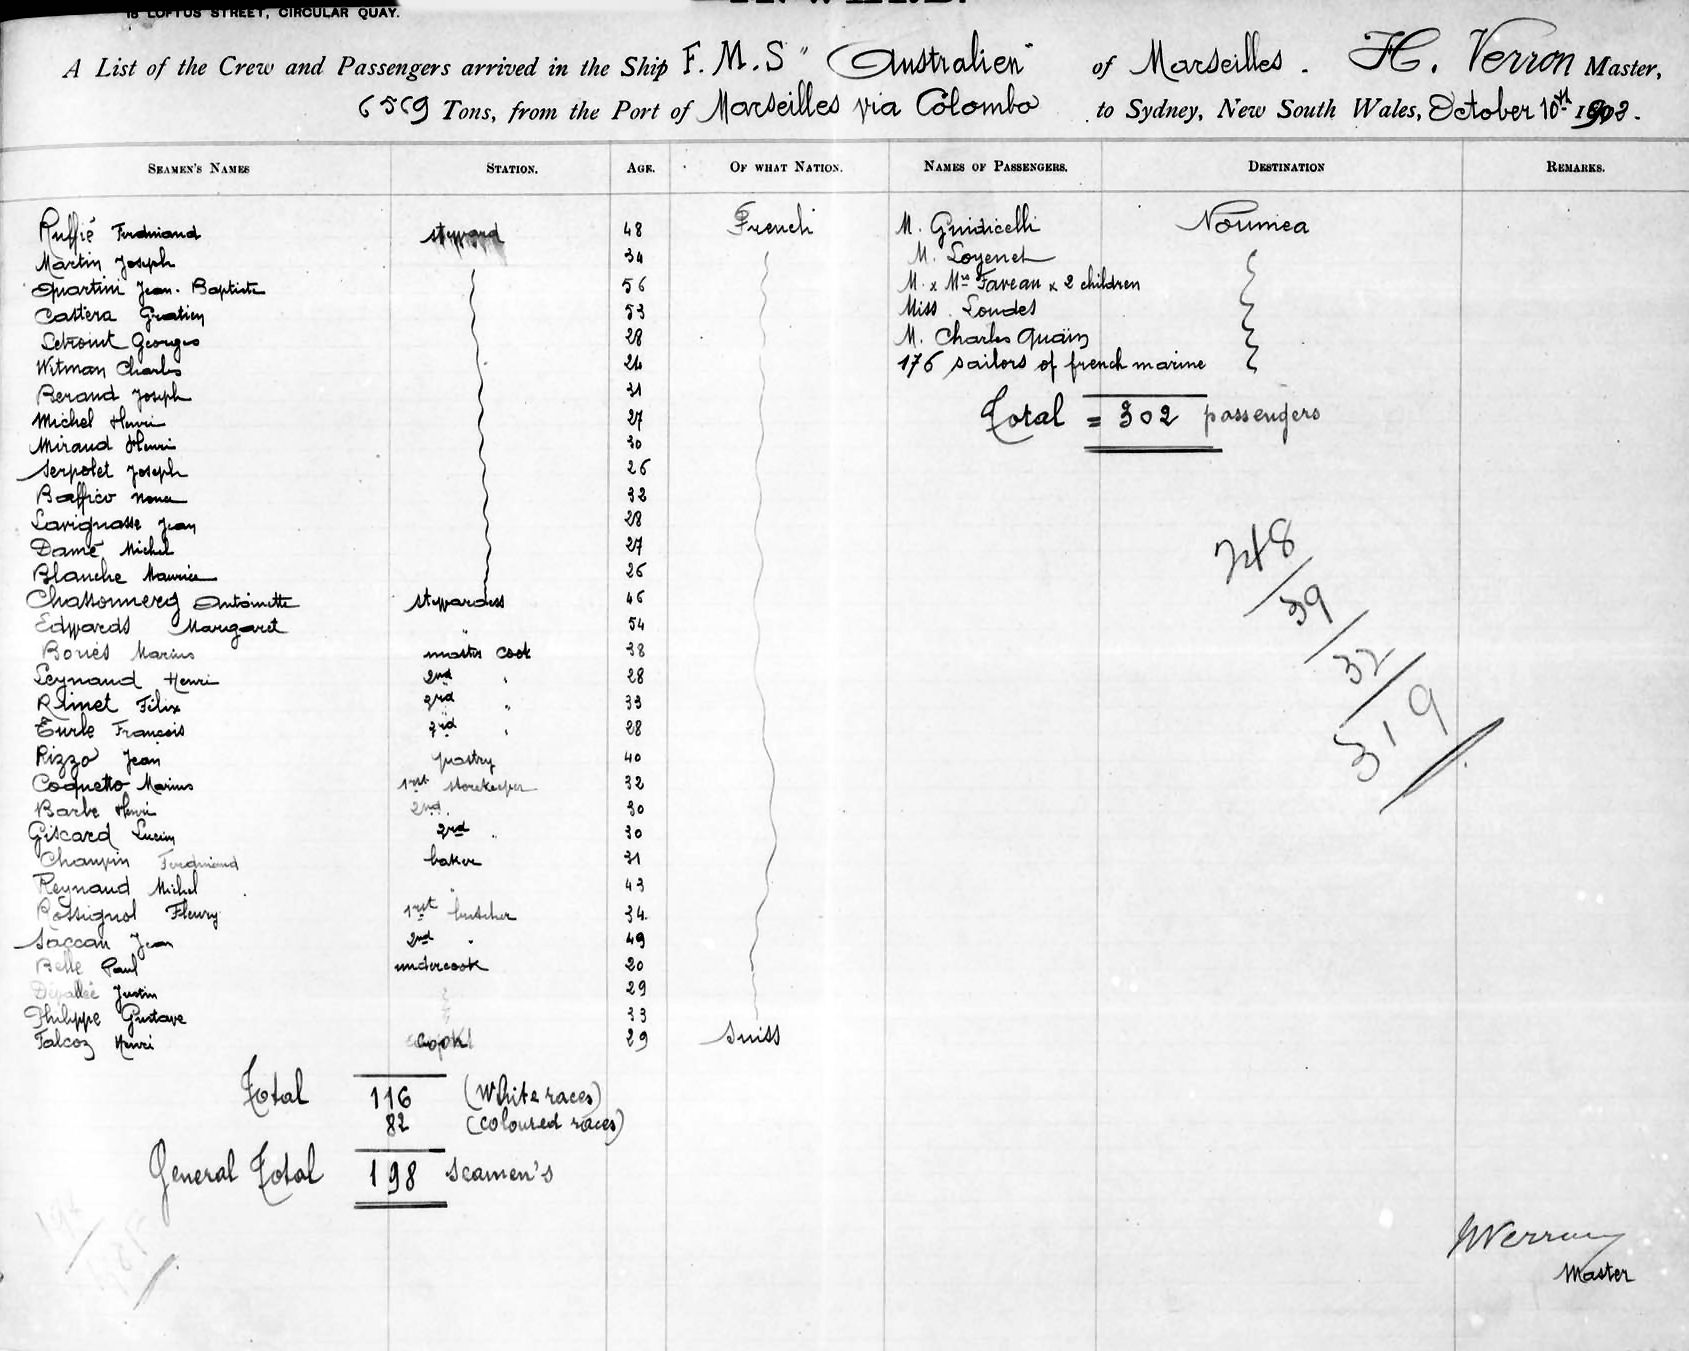 18 LOFTUS STREET, CIRCULAR QUAY.
A List of the Crew and Passengers arrived in the Ship F. M. S "Australien" of Marseilles. H. Verron Master,
6569 Tons, from the Port of Marseilles via Colombo to Sydney, New South Wales, October 10th 1903.
SEAMEN'S NAMES STATION. AGE. OF WHAT NATION. NAMES OF PASSENGERS. DESTINATION REMARKS.
Ruffié Ferdinand steward 48 French M. Guidicelli Noumea
Martin Joseph 34 M. Loyenet
Quartini Jean-Baptiste 56 M. x Mrs Faveau x 2 children
Castera Gratien 53 Miss. Loudes
Letroint Georges 28 M. Charles Quain
Witman Charles 24 176 sailors of french marine
Beraud Joseph 31
Michel Henri 27 Total = 302 passengers
Miraud Henri 30
Serpolet Joseph 26
Baffico 32
Lavignasse Jean 28
Damé Michel 27
Blanche Maurice 26
Antoinette stewardess 46
Edwards Margaret " 54
Bouiés Marius master cook 38
Leynaud Henri 2nd " 28
Rimet Félix 33
Eurle François 3rd " 28
Rizzo Jean pastry 40
Coquetto Marius 1rst storekeeper 32
Barbe Henri 2nd 30
Giscard Lucien 3rd " 30
Chauvin Ferdinand baker 31
Reynaud Michel " 43
Rossignol Fleury 1rst butcher 34
Saccau Jean 2nd " 49
Belle Paul undercook 20
Dépallié Justin 29
Philippe Gustave 33
Falcoz Henri cook 29 Suiss
248
39
32
319
Total 116 (White races)
82 (coloured races)
General Total 198 seamen's
HVerron
Master